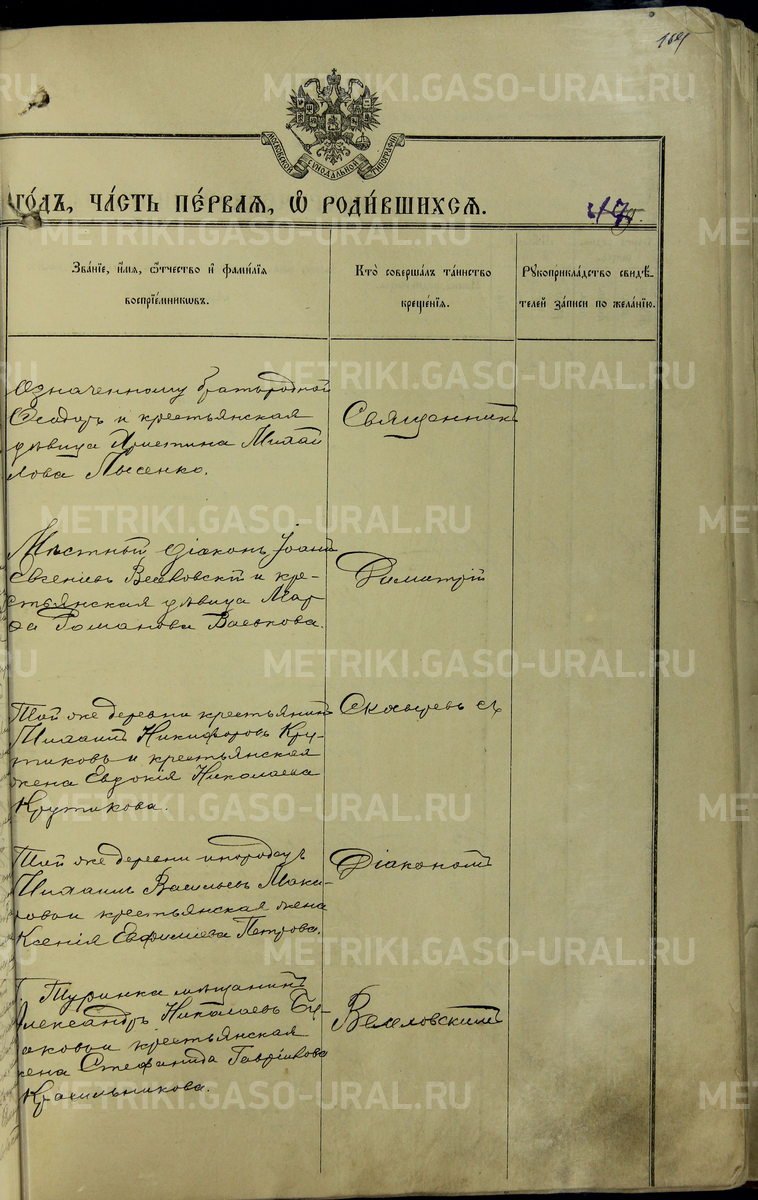 169
МОСКОВСКОЙ СѴНОДАЛЬНОЙ ТИПОГРАФІИ
ГО́ДЪ, ЧА́СТЬ ПЕ́РВАѦ, Ѡ҆ РОДИ́ВШИХСѦ.
Зва́нїе, и҆́мѧ, ѻ҆́тчество и҆ фами́лїѧ
воспрїе́мникѡвъ.
Кто̀ соверша́лъ та́инство
креще́нїѧ.
Рꙋкоприкла́дство свидѣ́-
телей за́писи по жела́нїю.
Означенному братъ родной
Ѳеодоръ и крестьянская
дѣвица Христина Михаи
лова Лысенко.
Священникъ
Мѣстной діаконъ Іоанн
Евгеніевъ и кре-
стьянская дѣвица Мар
ѳа Романова
Димитрій
Той же деревни крестьянинъ
Михаилъ Никифоровъ Кру-
тиковъ и крестьянская
жена Евдокія Николаева
Крутикова.
съ
Той же деревни инородецъ
Михаилъ Васильевъ Маки-
ровъ и крестьянская жена
Ксенія Евфиміева Петрова.
Діакономъ
Туринска мѣщанинъ
Александръ Николаевъ Бу-
ваковъ и крестьянская
жена Стефанида Гавріилова
Красильникова.
METRIKI.GASO-URAL.RU